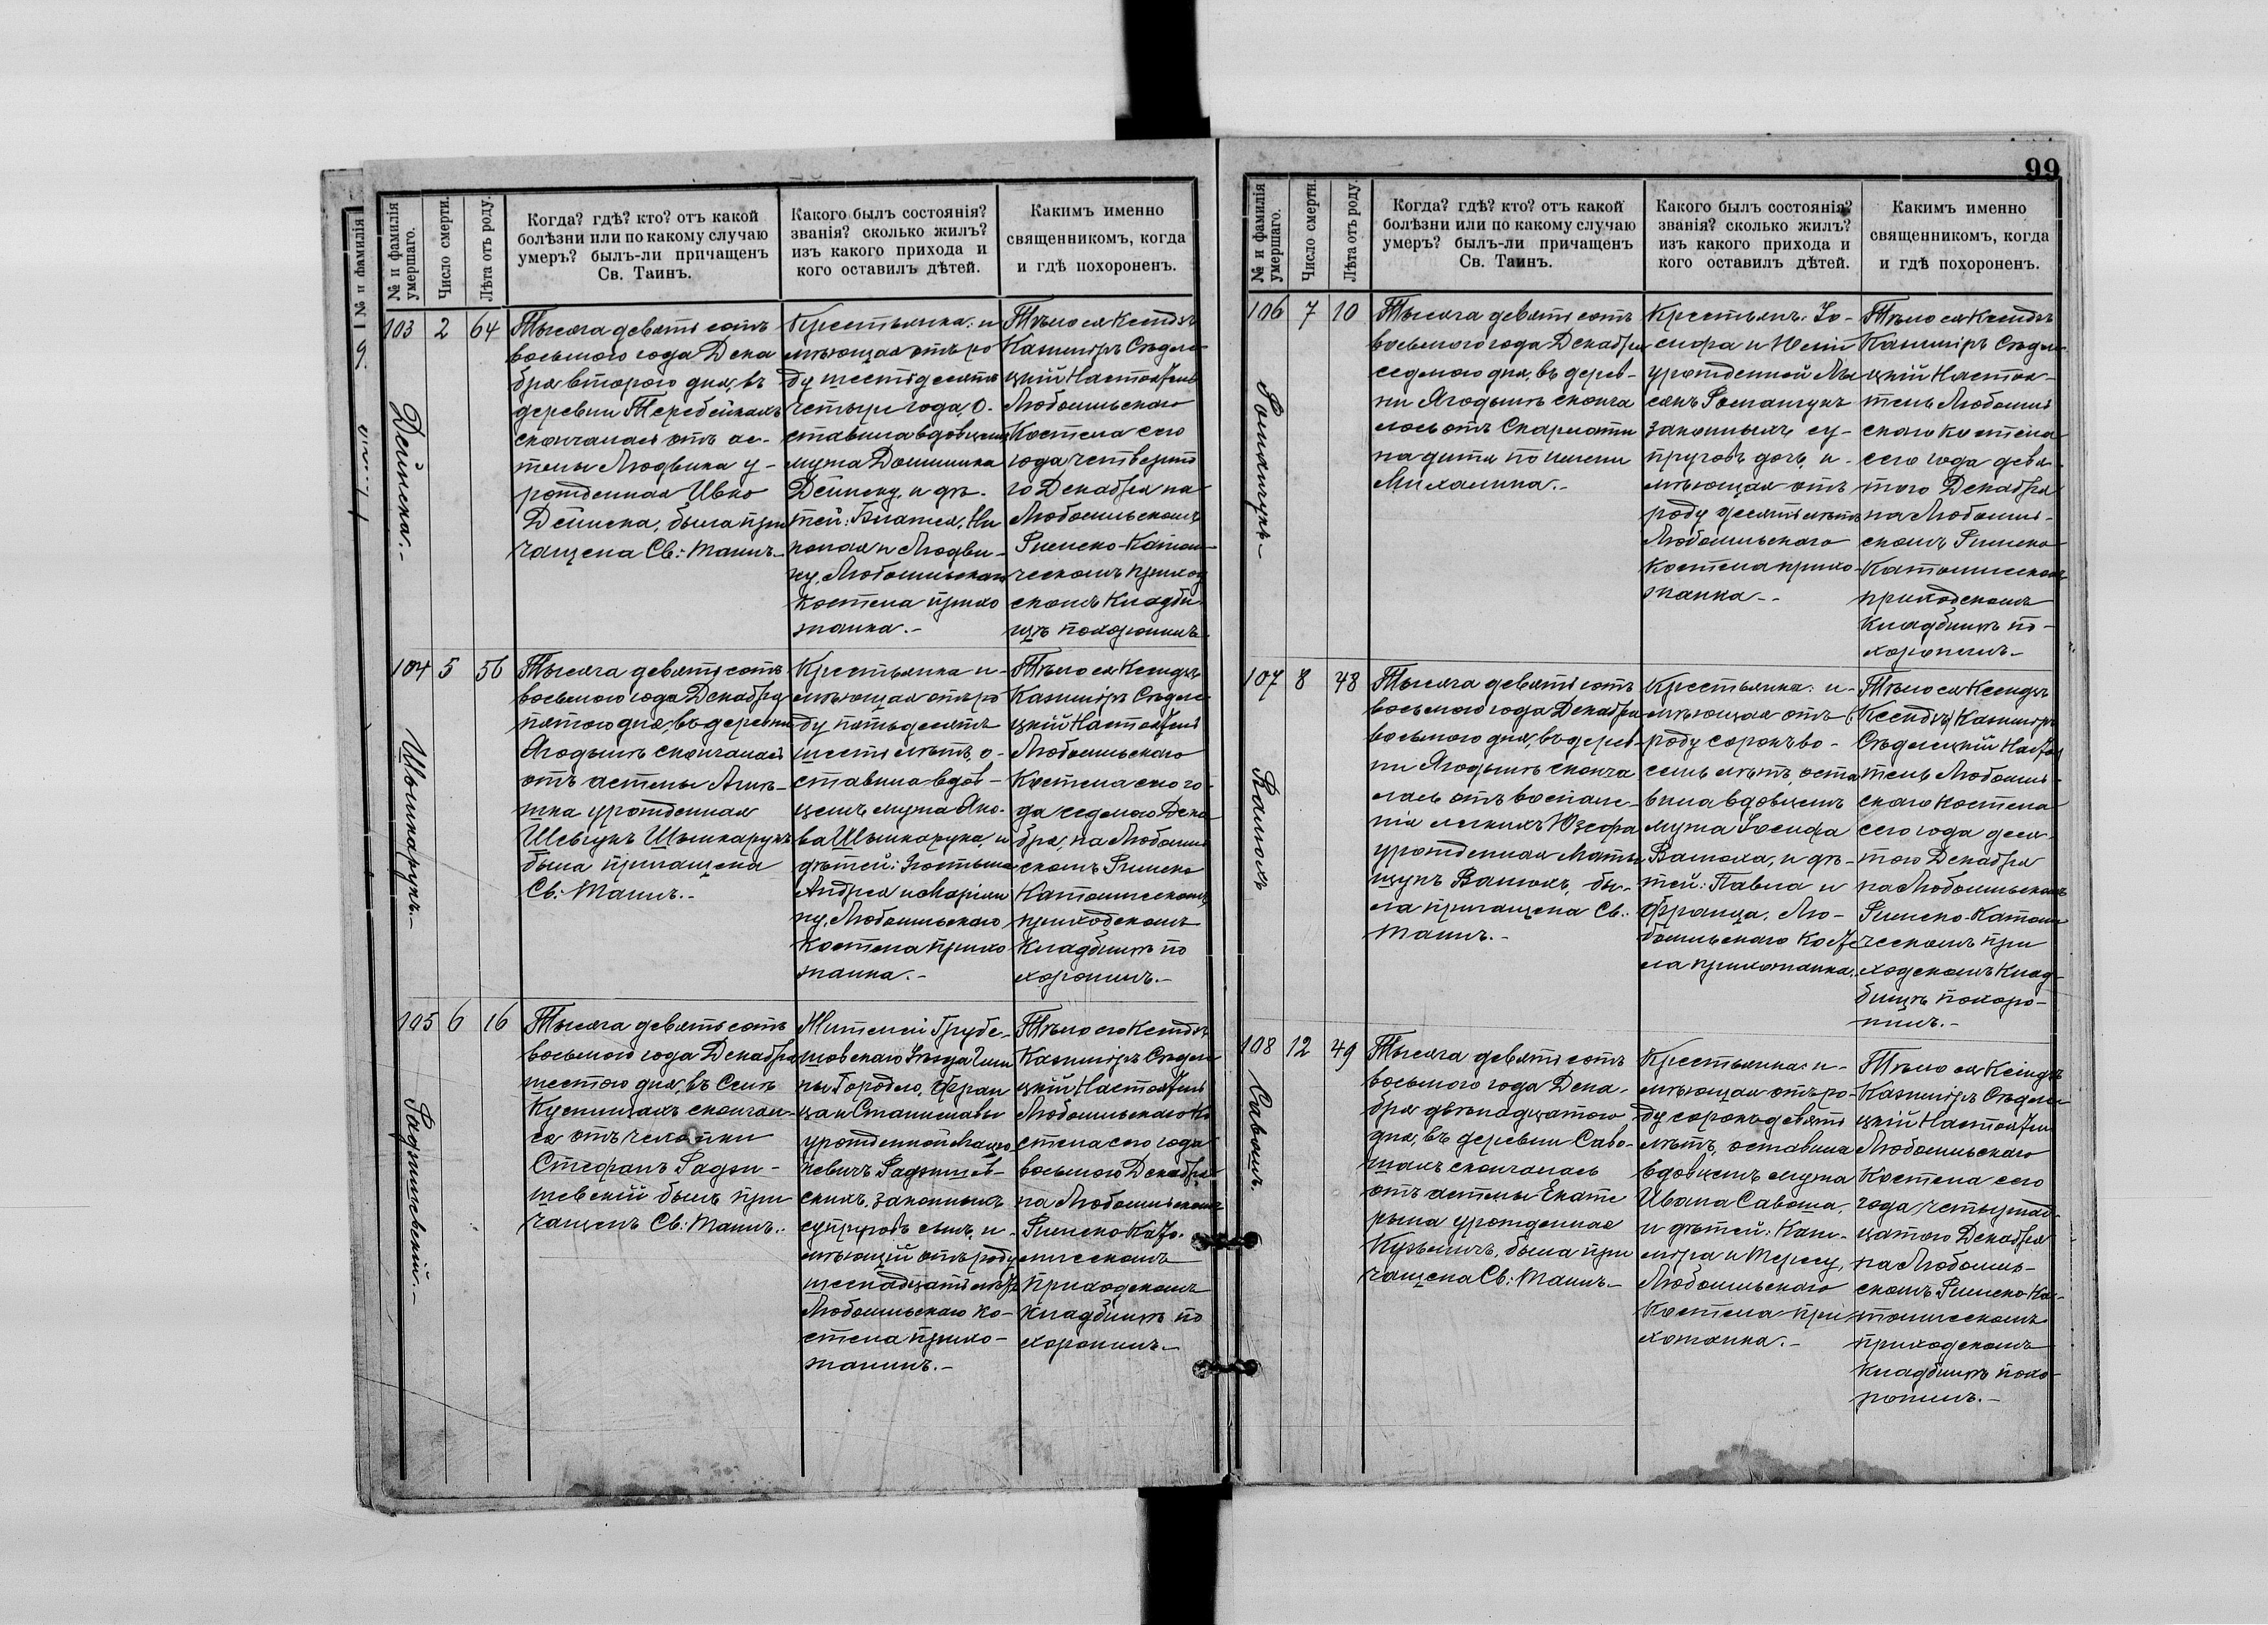 99
№ и фамилія
№ и фамилія
умершаго.
Число смерти.
Лѣта отъ роду.
Когда? гдѣ? кто? отъ какой
болѣзни или по какому случаю
умеръ? былъ-ли причащенъ
Св. Таинъ.
Какого былъ состоянія?
званія? сколько жилъ?
изъ какого прихода и
кого оставилъ дѣтей.
Какимъ именно
священникомъ, когда
и гдѣ похороненъ.
103
Дейнека.-
2
64
Тысяча девятьсотъ
восьмого года Дека
бря второго дня, въ
деревни Теребейкахъ
скончалась отъ ас-
тмы Людвика у-
рожденная Ивко
Дейнека, была при
чащена Св: Таинъ.-
Крестьянка: и
мѣющая отъ ро
ду шестьдесятъ
четыре года, о-
ставила вдовцемъ
мужа Доминика
Дейнеку, и дѣ-
тей:
и Людви-
ку, Любомльскаго
костела прихо
жанка.-
Тѣло ея Ксендзъ
Казиміръ Сѣдле-
цкій Настоятель
Любомльскаго
Костела сего
года четверта
го Декабря на
Любомльскомъ
Римско-Католи-
ческомъ приход
скомъ кладби-
щѣ похоронилъ
104
Шышкарукъ.-
5
56
Тысяча девятьсотъ
восьмого года Декабря
пятого дня, въ деревни
Ягодынѣ скончалась
отъ астмы Агнѣ-
шка урожденная
Шевчукъ Шышкарукъ
была причащена
Св: Таинъ.-
Крестьянка и-
мѣющая отъ ро
ду пятьдесятъ
шесть лѣтъ, о-
ставила вдов-
цемъ мужа Яко-
ва Шышкарука, и
дѣтей:
Андрея и Марьян
ну, Любомльскаго
костела прихо
жанка.-
Тѣло ея Ксендзъ
Казиміръ Сѣдле-
цкій Настоятель
Любомльскаго
Костела сего го-
да седмого Дека
бря, на Любомль
скомъ Римско
Католическомъ
приходскомъ
кладбищѣ по
хоронилъ.-
105
Радзишевскій.-
6
16
Тысяча девятьсотъ
восьмого года Декабря
шестого дня, въ Селѣ
Куснищахъ скончал-
ся отъ чахотки
Стефанъ Радзи-
шевскій былъ при
чащенъ Св: Таинъ.
Жителей Грубе-
шовскаго Уѣзда Гми
ны Городло, Фран
ца и Станиславы
урожденной
Радзишев-
скихъ, законныхъ
супруговъ сынъ, и-
мѣющій отъ роду
шеснадцать лѣтъ
Любомльскаго ко-
стела прихо-
жанинъ.-
Тѣло его Ксендзъ
Казиміръ Сѣдле
цкій Настоятель
Любомльскаго Ко
стела сего года
восьмого Декабря
на Любомльскомъ
Римско Като-
лическомъ
Приходскомъ
кладбищѣ по
хоронилъ.-
№ и фамилія
умершаго.
Число смерти.
Лѣта отъ роду.
Когда? гдѣ? кто? отъ какой
болѣзни или по какому случаю
умеръ? былъ-ли причащенъ
Св. Таинъ.
Какого былъ состоянія?
званія? сколько жилъ?
изъ какого прихода и
кого оставилъ дѣтей.
Какимъ именно
священникомъ, когда
и гдѣ похороненъ.
106
Романчукъ.-
7
10
Тысяча девятьсотъ
восьмого года Декабря
седмого дня, въ дерев-
ни Ягодынѣ сконча
лось отъ Скарлати
на дитя по имени
Михалина.-
Крестьянъ: Іо-
сифа и
урожденной
Романчукъ
законныхъ су-
пруговъ дочь, и-
мѣющая отъ
роду десять лѣтъ
Любомльскаго
костела прихо-
жанка.-
Тѣло ея Ксендзъ
Казиміръ Сѣдле-
цкій Настоя-
тель Любомль
скаго костела
сего года девя-
того Декабря
на Любомль-
скомъ Римско
Католическомъ
приходскомъ
кладбищѣ по-
хоронилъ.-
107
Валюхъ
8
48
Тысяча девятьсотъ
восьмого года Декабря
восьмого дня, въ дерев-
ни Ягодынѣ сконча
лась отъ воспале-
нія легкихъ Юзефа
урожденная
Валюхъ, бы-
ла причащена Св:
Таинъ.-
Крестьянка: и-
мѣющая отъ
роду сорокъ во-
семь лѣтъ, оста
вила вдовцемъ
мужа Іосифа
Валюха, и дѣ-
тей: Павла и
Франца, Лю-
бомльскаго косте
ла прихожанка.
Тѣло ея Ксендзъ
(Ксендзъ) Казиміръ
Сѣдлецкій Настоя
тель Любомль-
скаго костела
сего года деся-
того Декабря
на Любомльскомъ
Римско-Католи
ческомъ при
ходскомъ клад-
бищѣ похоро-
нилъ.-
108
Савошъ.
12
49
Тысяча девятьсотъ
восьмого года Дека-
бря двѣнадцатого
дня, въ деревни Саво-
шахъ скончалась
отъ астмы Екате
рына урожденная
Кузьмичъ, была при
чащена Св: Таинъ.-
Крестьянка: и-
мѣющая отъ ро-
ду сорокъ девять
лѣтъ, оставила
вдовцемъ мужа
Ивана Савоша,
и дѣтей: Кази-
міра и Тересу,
Любомльскаго
Костела при
хожанка.-
Тѣло ея Ксендзъ
Казиміръ Сѣдле
цкій Настоятель
Любомльскаго
Костела сего
года четырнад-
цатого Декабря
на Любомль-
скомъ Римско Ка-
толическомъ
приходскомъ
кладбищѣ похо-
ронилъ.-